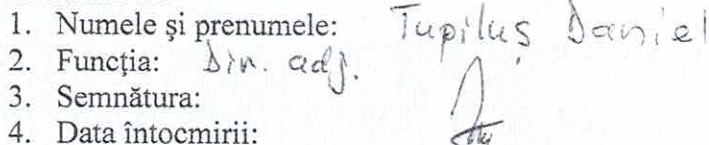 1. Numele și prenumele: Tupiluș Daniel
2. Funcția: Dir. adj.
3. Semnătura:
4. Data întocmirii: